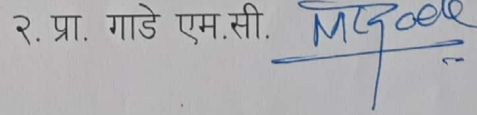 २. प्रा. गाडे एम.सी.